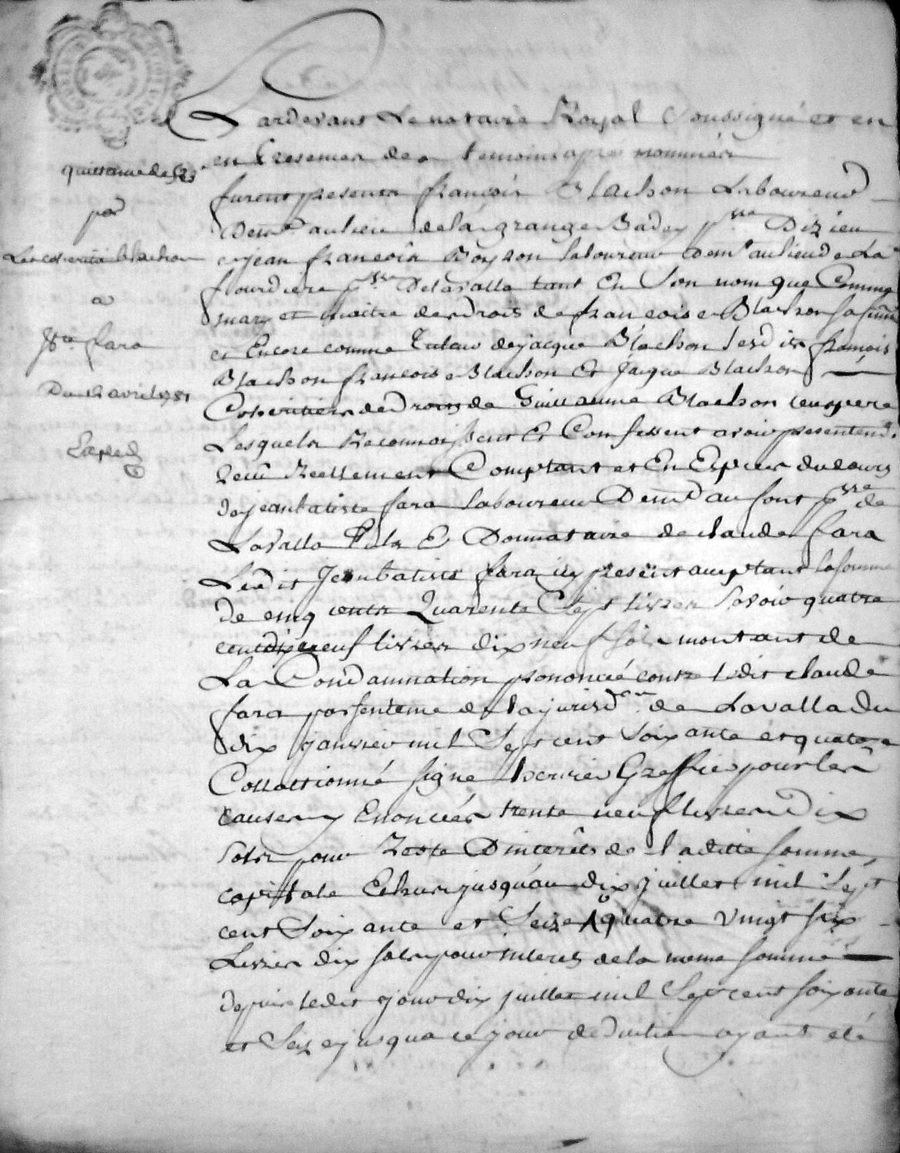 quittance de 523
par
Les coheritiers blachon
a
Jte fara
Du 12 avril 1781
Exped
Pardevant Le notaire Royal Soussigné et en
en Presences des temoins apres nommés
furent presents françois Blachon Laboureur
Demt au lieu de la grange Badey psse Dizieu
et jean françois Boyron laboureur Demt au lieu de La
flourdiere psse De lavalla tant En Son nom que Comme
mary et maitre des droits de francoise Blachon sa femme
et Encore comme Tuteur de jacque Blachon Lesdits francois
Blachon francoise Blachon Et Jaque Blachon
Coheritiers de Droits de Guillaume Blachon leur pere
Lesquels Reconnoissent Et Confessent avoir presentemt
Receu Reellement Comptant et En Especes du cours
de jean batiste fara Laboureur Demt au font psse de
Lavalla fils Et Donnataire de claude fara
Ledit Jean batiste fara icy present acceptant la somme
De cinq cents Quarente Sept livres Savoir quatre
cent dix neuf livres dix neuf sols montant de
La Condamnation prononcée contre ledit claude
fara par sentence de la jurisdon de Lavalla du
dix janvier mil Sept cent Soixante et quatorze
Collationné signé Greffier pour les
causes y Enoncées trente neuf livres dix
sols pour Reste D'interêts de laditte somme
capitale Echus jusqu'au dix juillet mil Sept
cent Soixante et Seize Et quatre vingt six
Livres dix sols pour interets de la meme somme
depuis ledit jour dix juillet mil Sept cent soixante
et Seize jusqua ce jour deduction ayant eté